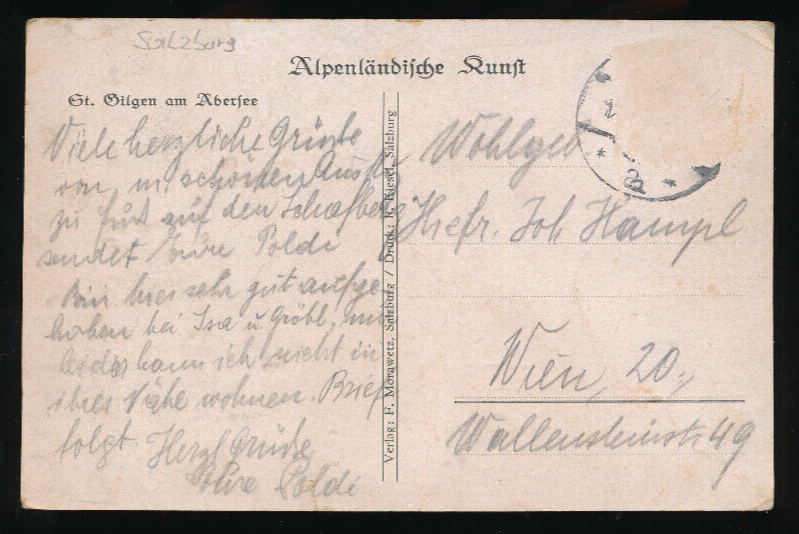 Salzburg
Alpenländische Kunst
St. Gilgen am Abersee
Viele herzliche Grüße
von m. schönen Ausfl.
zu Fuß auf den Schafberg
sendet Eure Poldi
Bin hier sehr gut aufge-
hoben bei Isa u. Gröbl, nur
leider kann ich nicht in
ihrer Nähe wohnen. Brief
folgt. Herzl Grüße
Eure Poldi
Verlag: F. Morawetz, Salzburg / Druck: R. Kiesel, Salzburg
Wohlgeb
Joh. Hampl
Wien, 20.,
Wallensteinstr 49